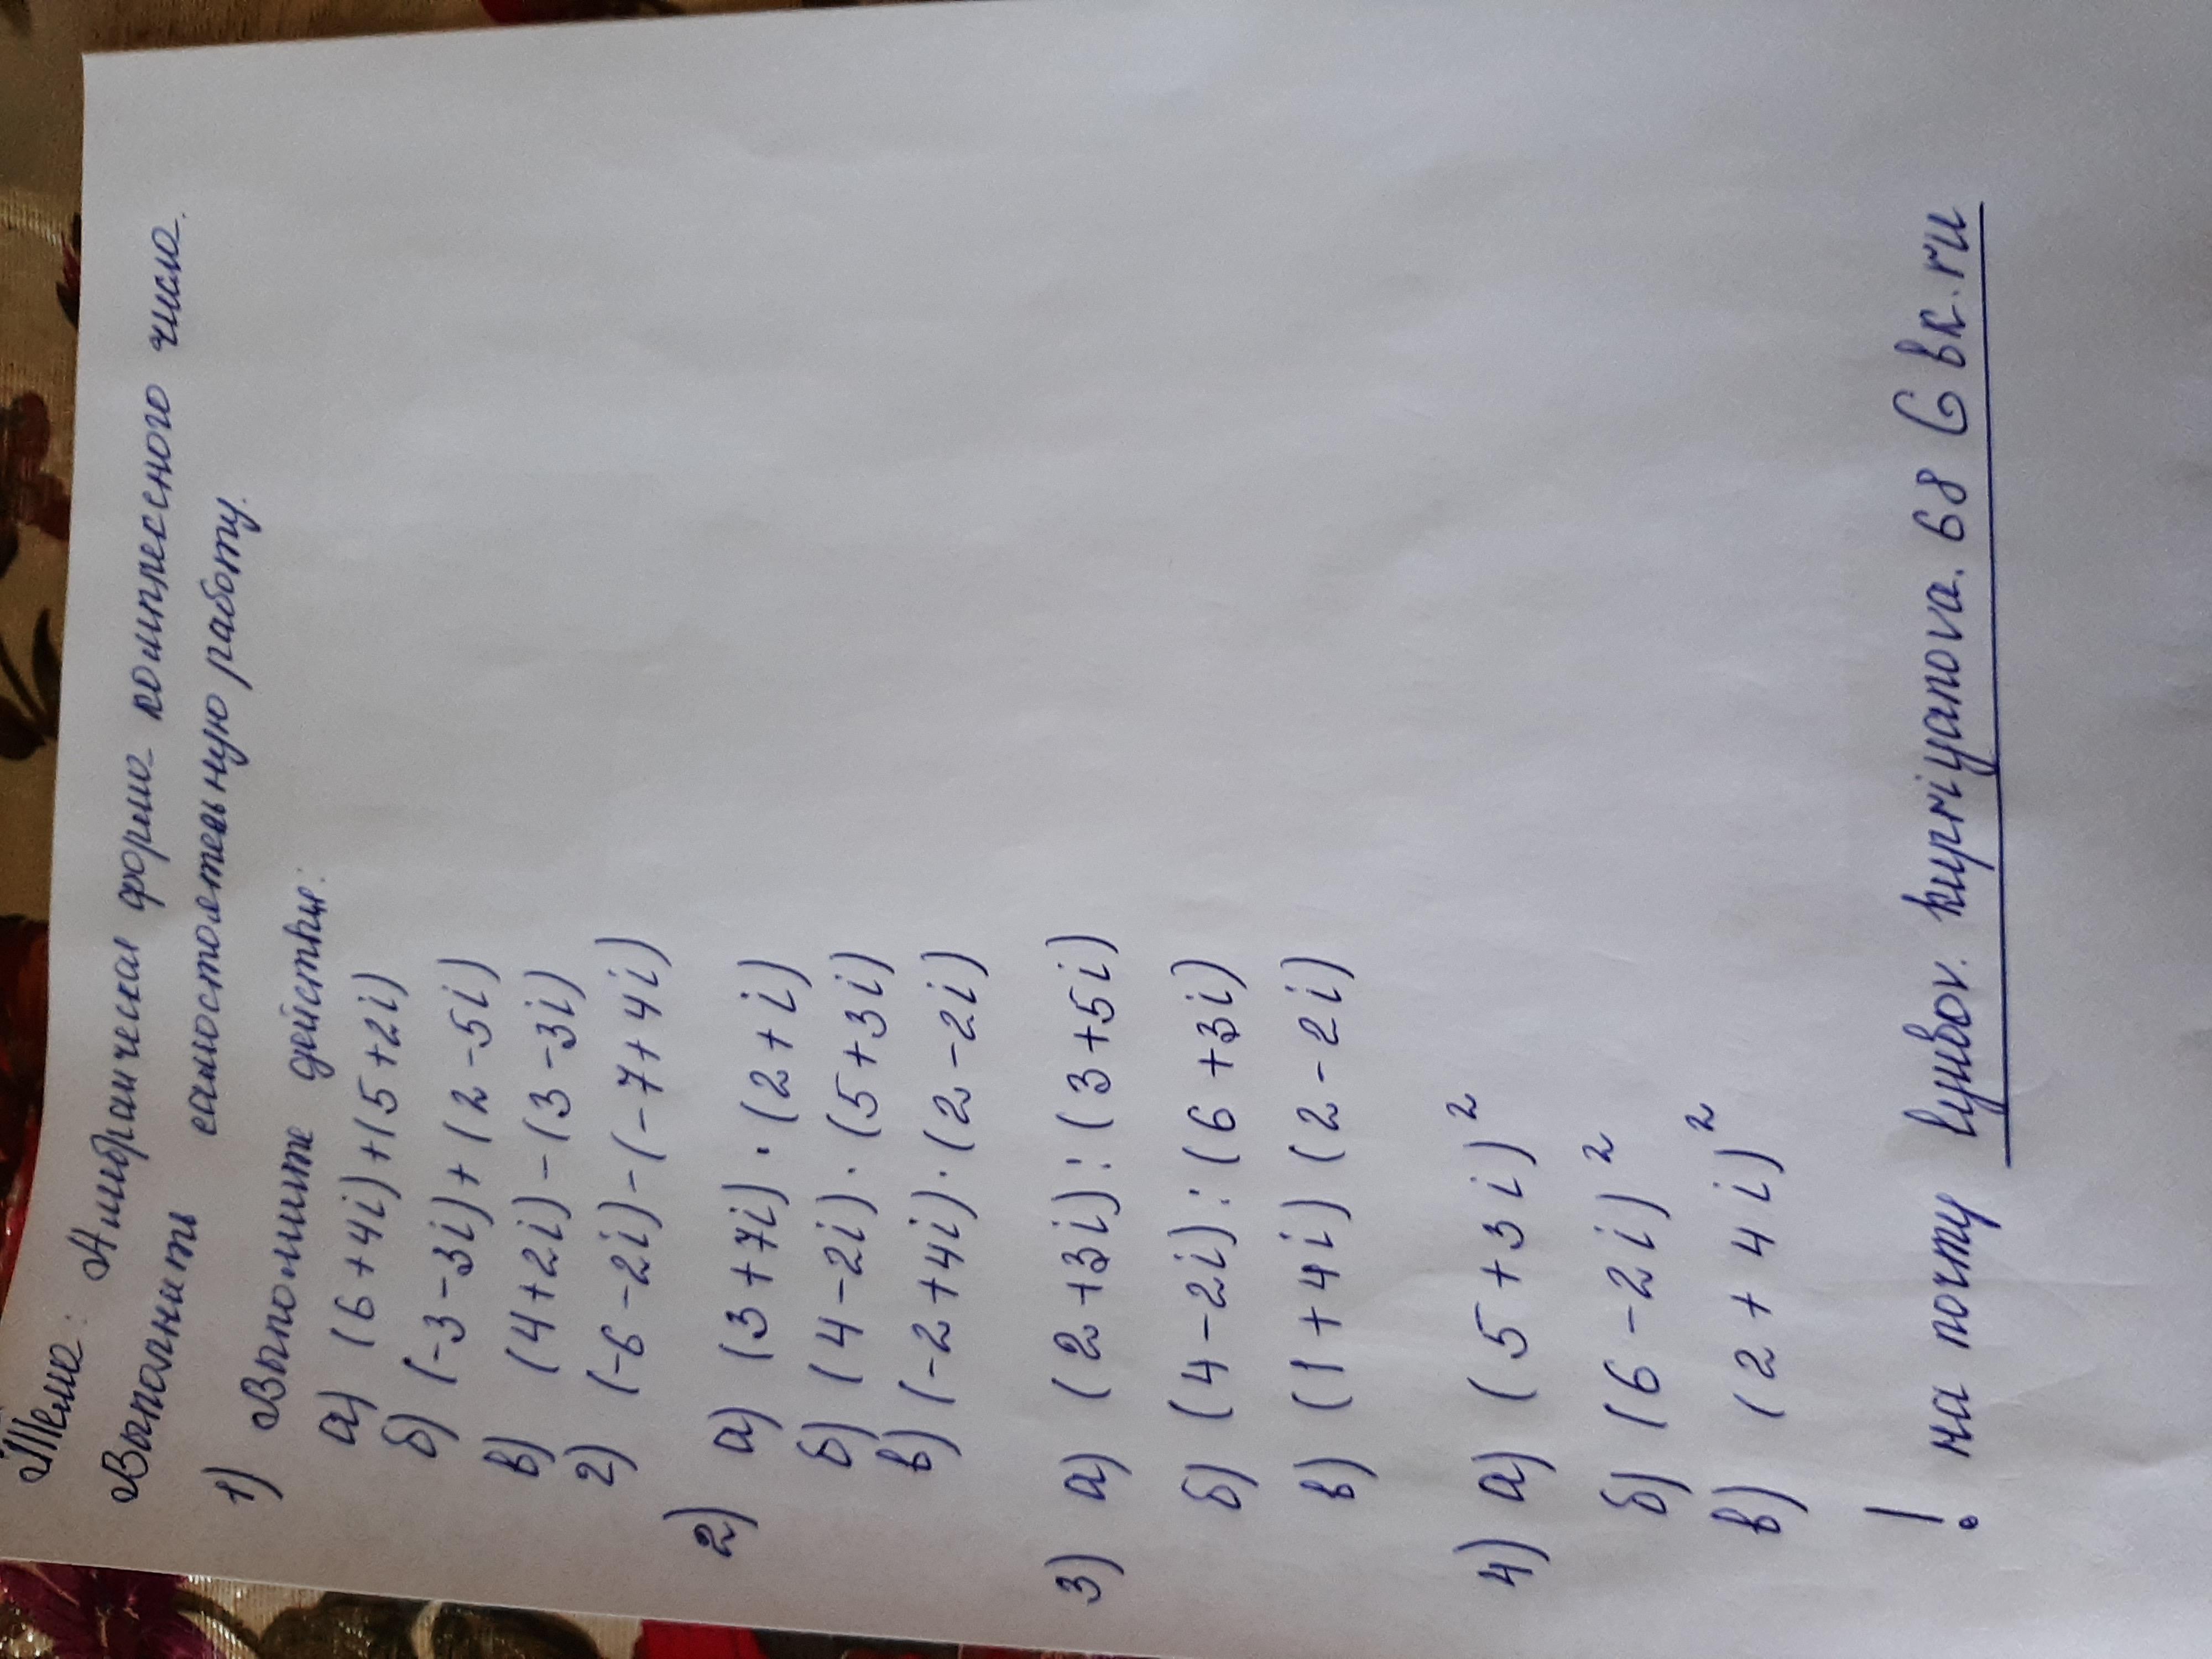 Тема: Алгебраическая форма комплексного числа.
Выполнить самостоятельную работу.
1) Выполните действия:
а) (6+4i)+(5+2i)
б) (-3-3i)+(2-5i)
в) (4+2i)-(3-3i)
г) (-6-2i)-(-7+4i)
2) а) (3+7i)·(2+i)
б) (4-2i)·(5+3i)
в) (-2+4i)·(2-2i)
3) а) (2+3i):(3+5i)
б) (4-2i):(6+3i)
в) (1+4i)(2-2i)
4) а) (5+3i)²
б) (6-2i)²
в) (2+4i)²
! на почту lyubov.kupriyanova.68@bk.ru